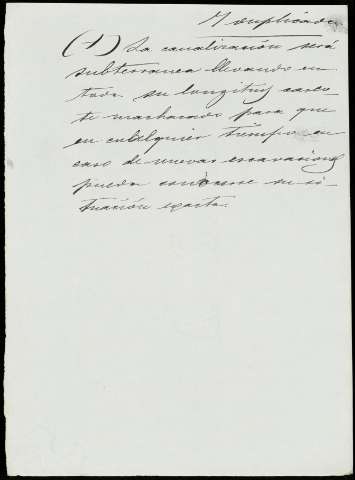 (1) La canalización será
subterranea llevando en
toda su longitud casco
te machacado para que
en cualquier tiempo en
caso de nuevas escavaciones
pueda conocerse su si-
tuación exacta.